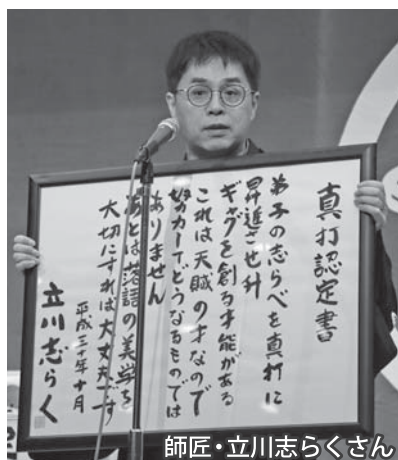 真打認定書
弟子の志らべを真打に
昇進させ升
ギャグを創る才能がある
これは天賦の才なので
努力でどうなるものでは
ありません
あとは落語の美学を
大切にすれば大丈夫です
平成三十年十月
立川志らく
師匠・立川志らくさん